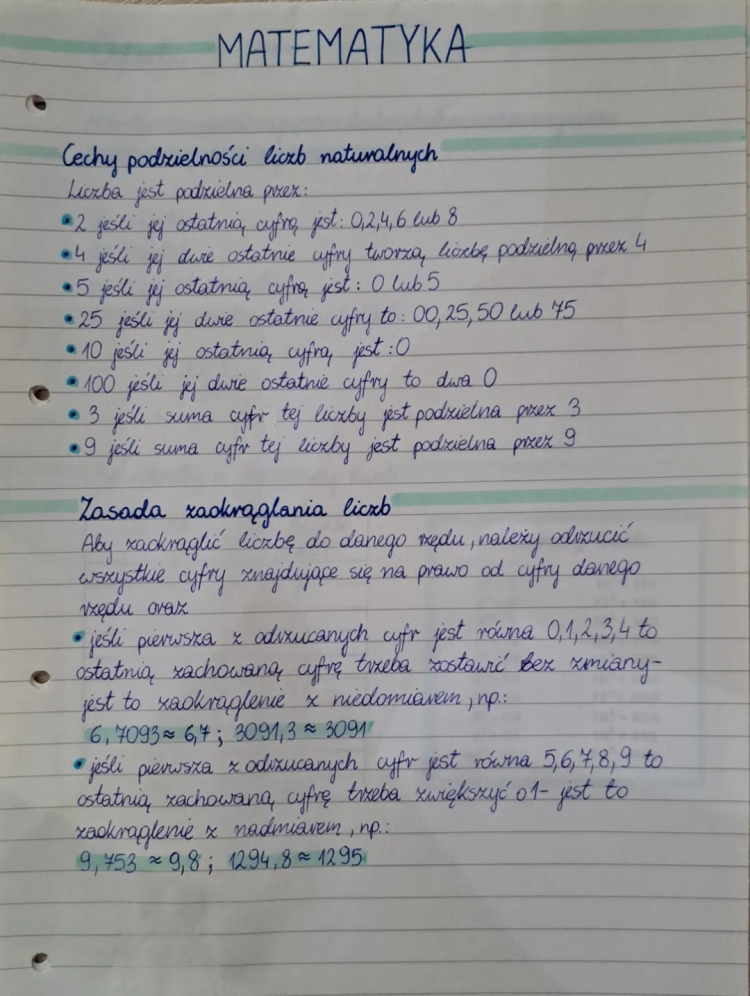 MATEMATYKA
Cechy podzielności liczb naturalnych
Liczba jest podzielna przez:
•2 jeśli jej ostatnią cyfrą jest: 0,2,4,6 lub 8
•4 jeśli jej dwie ostatnie cyfry tworzą liczbę podzielną przez 4
•5 jeśli jej ostatnią cyfrą jest: 0 lub 5
•25 jeśli jej dwie ostatnie cyfry to: 00,25,50 lub 75
•10 jeśli jej ostatnią cyfrą jest :0
•100 jeśli jej dwie ostatnie cyfry to dwa 0
•3 jeśli suma cyfr tej liczby jest podzielna przez 3
•9 jeśli suma cyfr tej liczby jest podzielna przez 9
Zasada zaokrąglania liczb
Aby zaokrąglić liczbę do danego rzędu, należy odrzucić
wszystkie cyfry znajdujące się na prawo od cyfry danego
rzędu oraz
•jeśli pierwsza z odrzucanych cyfr jest równa 0,1,2,3,4 to
ostatnią zachowaną cyfrę trzeba zostawić bez zmiany-
jest to zaokrąglenie z niedomiarem, np.:
6,7093≈ 6,7 ; 3091,3 ≈ 3091
•jeśli pierwsza z odrzucanych cyfr jest równa 5,6,7,8,9 to
ostatnią zachowaną cyfrę trzeba zwiększyć o 1- jest to
zaokrąglenie z nadmiarem, np.:
9,753 ≈ 9,8 ; 1294,8 ≈ 1295